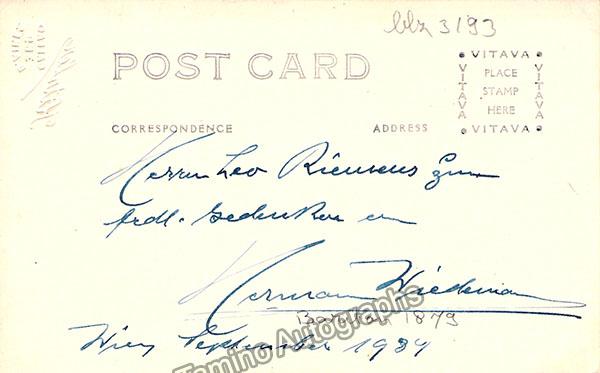 blz 3/93
POST CARD
VITAVA
VITAVA
PLACE
STAMP
HERE
VITAVA
VITAVA
CORRESPONDENCE
ADDRESS
Herrn Leo Riemens zum
frdl. Gedenken an
Hermann Wiedemann
Bariton 1879
Wien September 1934
Tamino Autographs